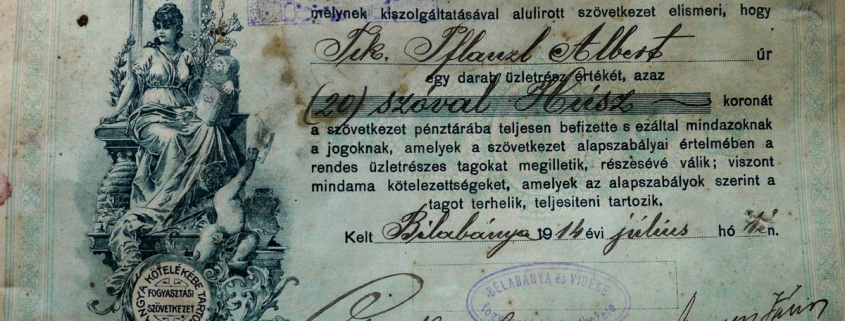 melynek kiszolgáltatásával alulirott szövetkezet elismeri, hogy
Tek. Pflanzl Albert úr
egy darab üzletrész értékét, azaz
(20) szóval Húsz koronát
a szövetkezet pénztárába teljesen befizette s ezáltal mindazoknak
a jogoknak, amelyek a szövetkezet alapszabályai értelmében a
rendes üzletrészes tagokat megilletik, részésévé válik; viszont
mindama kötelezettségeket, amelyek az alapszabályok szerint a
tagot terhelik, teljesiteni tartozik.
Kelt Bélabánya 1914 évi július hó
BELABÁNYA és VIDÉKE
ANGYA KÖTELÉKÉBE TARTO
FOGYASZTÁSI
SZÖVETKEZET
János